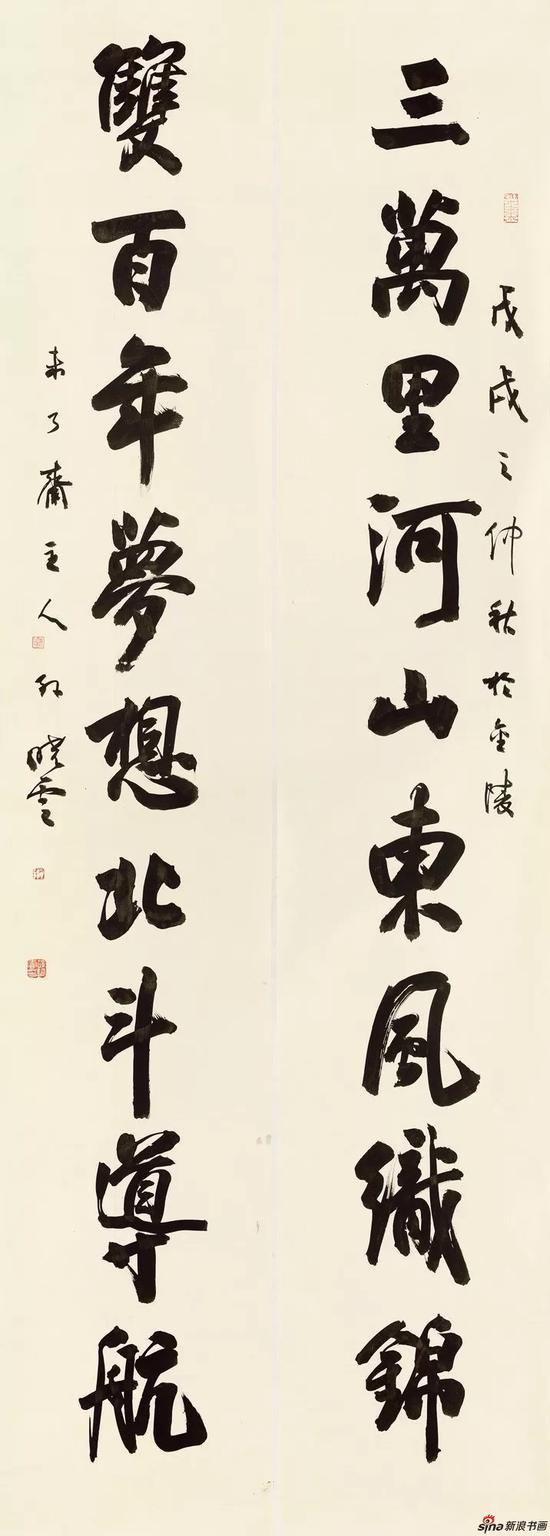 三萬里河山東風織錦
戊戌之仲秋於金陵
雙百年夢想北斗導航
未了齋主人孙晓雲
sina新浪书画